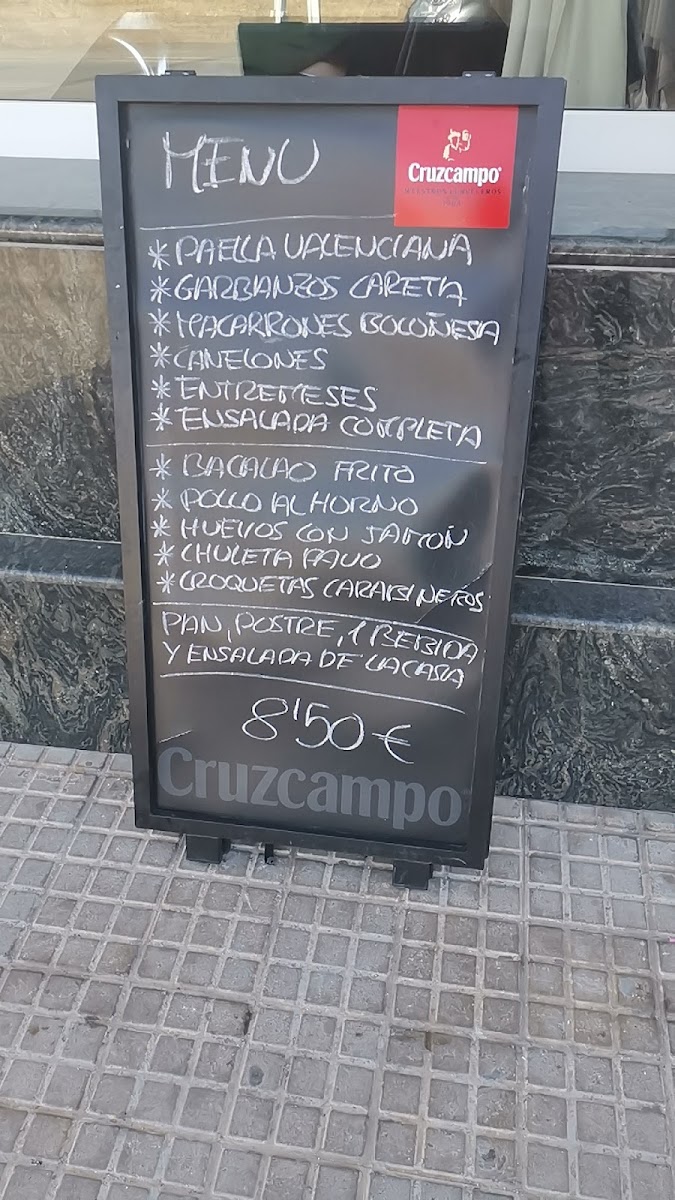 MENU
Cruzcampo
* PAELLA VALENCIANA
* GARBANZOS CARETA
* MACARRONES BOLOÑESA
* CANELONES
* ENTREMESES
* ENSALADA COMPLETA
* BACALAO FRITO
* POLLO AL HORNO
* HUEVOS CON JAMON
* CHULETA PAVO
* CROQUETAS CARABINEROS
PAN, POSTRE, 1 BEBIDA
Y ENSALADA DE LA CASA
8'50€
Cruzcampo